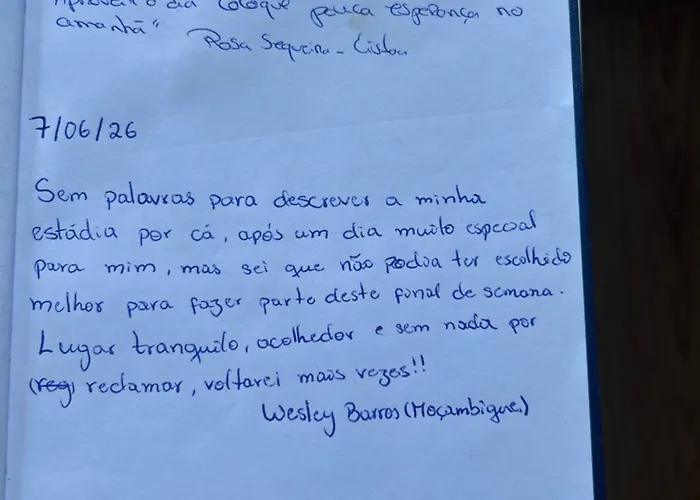 o dia coloque pouca esperança no
amanhã"
Rosa Sequeira - Lisboa
7/06/26
Sem palavras para descrever a minha
estádia por cá, após um dia muito especial
para mim, mas sei que não podia ter escolhido
melhor para fazer parte deste final de semana.
Lugar tranquilo, acolhedor e sem nada por
(reg) reclamar, voltarei mais vezes!!
Wesley Barros (Moçambique)